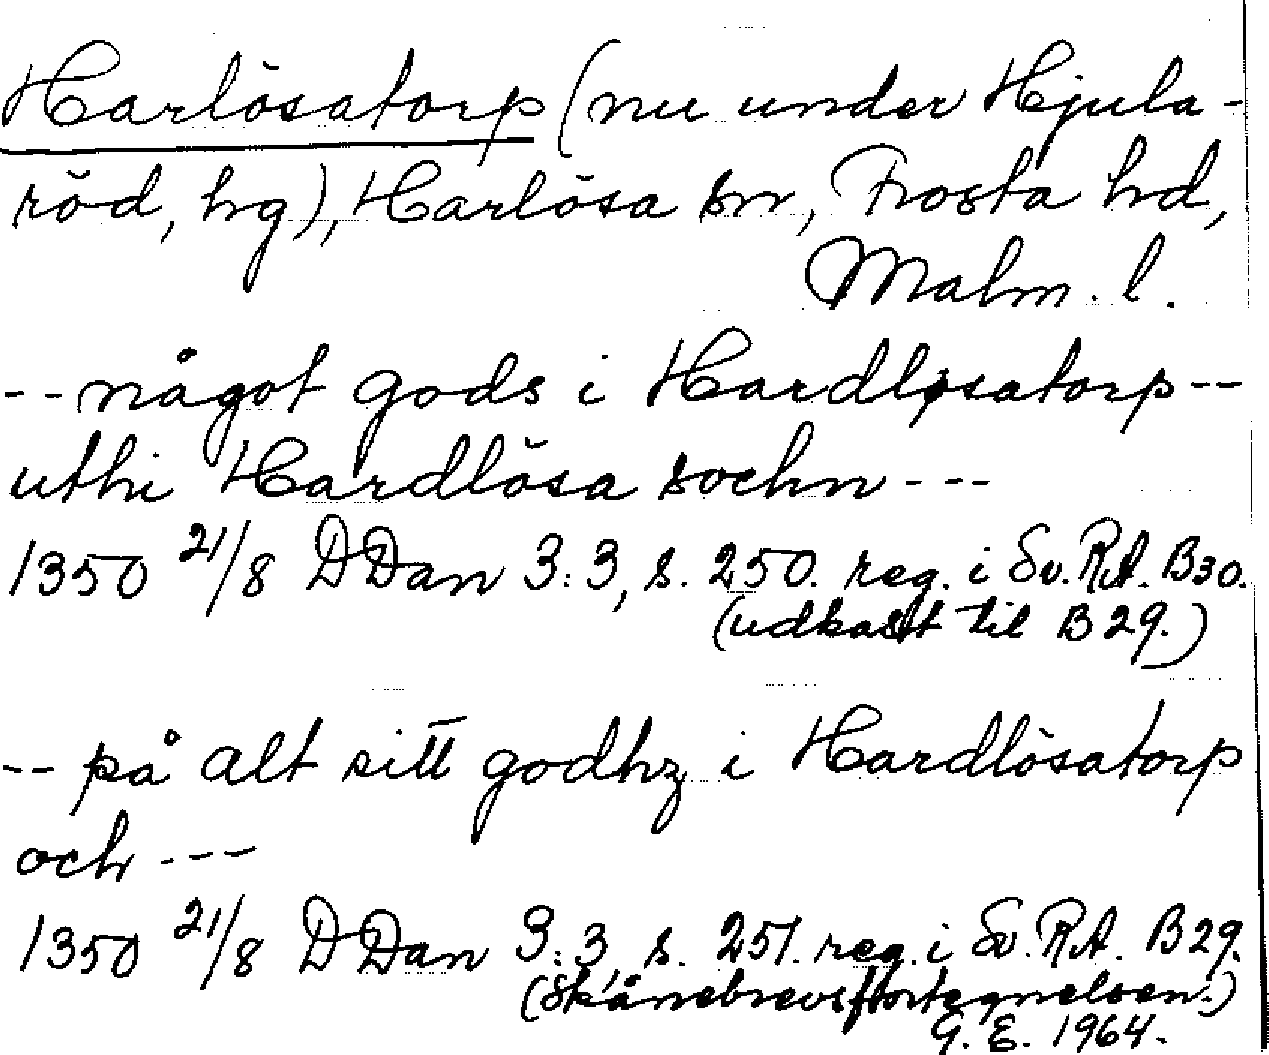 Harlösatorp (nu under Hjula-
röd, hg), Harlösa sn, Frosta hd,
Malm. l.
-- något gods i Hardløsatorp --
uthi Hardlösa sochn ---
1350 21/8 DDan 3:3, s. 250. reg. i Sv. RA. B30.
(udkast til B 29.)
-- på alt sitt godhz i Hardlösatorp
och ---
1350 21/8 DDan 3:3, s. 251. reg. i Sv. RA. B 29.
(Skånebrevsfortegnelsen.)
G. E. 1964.